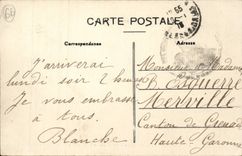 CARTE POSTALE
Correspondance
Adresse
J'arriverai
lundi soir 2 heures
Je vous embrasse
à tous.
Blanche
Monsieur et Madame
B. Esquerré
Merville
Canton de Grenade
Haute Garonne